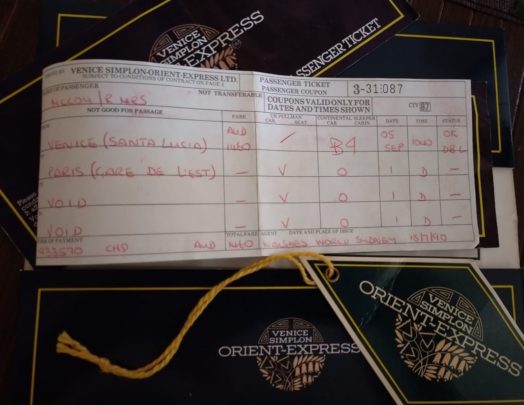 VENICE
SIMPLON
ORIENT-EXPRESS
PASSENGER TICKET
BY VENICE SIMPLON-ORIENT-EXPRESS LTD.
SUBJECT TO CONDITIONS OF CONTRACT ON PAGE
PASSENGER TICKET
PASSENGER COUPON
3-31:087
OF PASSENGER
McCOY /R MRS
NOT TRANSFERABLE
COUPONS VALID ONLY FOR
DATES AND TIMES SHOWN
NOT GOOD FOR PASSAGE
FARE
UK PULLMAN
CAR SEAT
CONTINENTAL SLEEPER
CAR CABIN
DATE
TIME
STATUS
VENICE (SANTA LUCIA)
AUD
1460
/
B4
05
SEP
1040
OK
PARIS (GARE DE L'EST)
—
V
O
I
D
—
VOID
—
V
O
I
D
—
VOID
—
V
O
I
D
—
OF PAYMENT
TOTAL FARE
AGENT
DATE AND PLACE OF ISSUE
AUD
WORLD SYDNEY
VENICE
SIMPLON
ORIENT-EXPRESS
VENICE
SIMPLON
ORIENT-EXPRESS